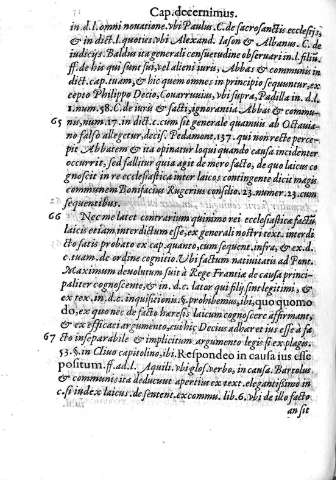 Cap. decernimus.
in d. l. omni nouatione. vbi Paulus C. de sacrosanctis ecclesijs,
& in dict. l. quoties vbi Alexand. Iason & Albanus. C. de
iudicijs. Baldus ita generali consuetudine obseruari in l. filiũ.
ff. de his qui sunt sui, vel alieni iuris, Abbas & communis in
dict. cap. tuam, & hic quem omnes in principio sequuntur, ex
cepto Philippo Decio, Couarruuias, vbi supra. Padilla in. d. l.
1. num. 58. C. de iuris & facti, ignorantia. Abbas & commu-
65 nis, num. 17. in dict. c. cum sit generale quamuis ab Octauia-
no falso allegetur, decis. Pedamont. 137. qui non recte perce-
pit Abbatem & ita opinatur loqui quando causa incidenter
occurrit, sed fallitur quia agit de mero facto, de quo laicus co
gnoscit in re ecclesiastica inter laicos contingente dicit magis
communem Bonifacius Rugerius consilio. 23. numer. 23. cum
sequentibus.
66 Nec me latet contrarium quinimo rei ecclesiasticæ factũ
laicis etiam interdictum esse, ex generali nostri text. interdi
cto satis probato ex cap. quanto, cum sequent. infra, & ex d.
c. tuam. de ordine cognitio. Vbi factum natiuitatis ad Pont.
Maximum deuolutum fuit à Rege Frantiæ de causa princi-
paliter cognoscente, & in. d. c. lator qui filij sint legitimi, &
ex tex. in. d. c. inquisitionis §. prohibemus, ibi, quoquomo
do, ex quo nec de facto hæresis laicum cognoscere affirmant,
& ex efficaci argumento, cui hic Decius adhæret ius esse à fa-
67 cto inseparabile & implicitum argumento legis si ex plagis.
53. §. in Cliuo capitolino, ibi. Respondeo in causa ius esse
positum. ff. ad. l. Aquili. vbi glos. verbo, in causa. Bartolus
& communis ita deducunt apertius ex text. elegantissimo in
c. si index laicus. de sentent. excommu. lib. 6. vbi de illo facto
an sit